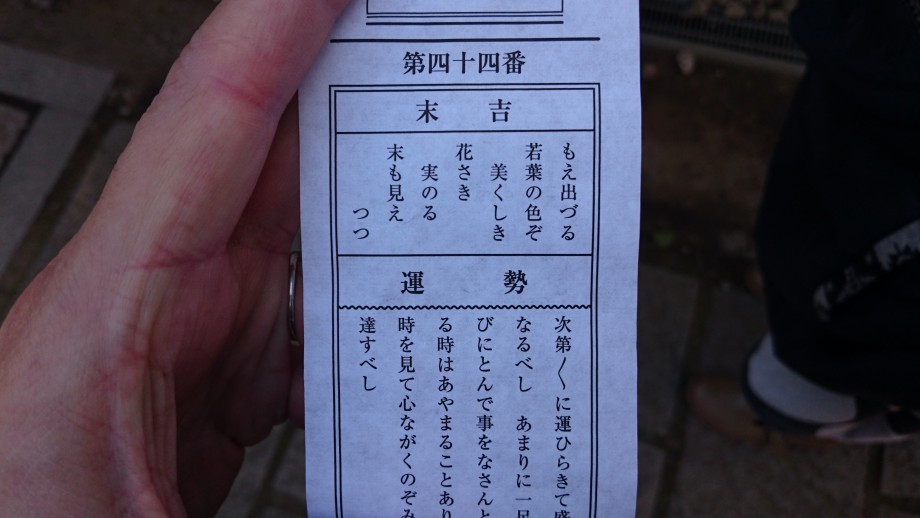 第四十四番
末吉
もえ出づる
若葉の色ぞ
美くしき
花さき
実のる
末も見え
つつ
運勢
次第〱に運ひらきて盛
なるべし　あまりに一足
びにとんで事をなさんと
る時はあやまることあり
時を見て心ながくのぞみ
達すべし